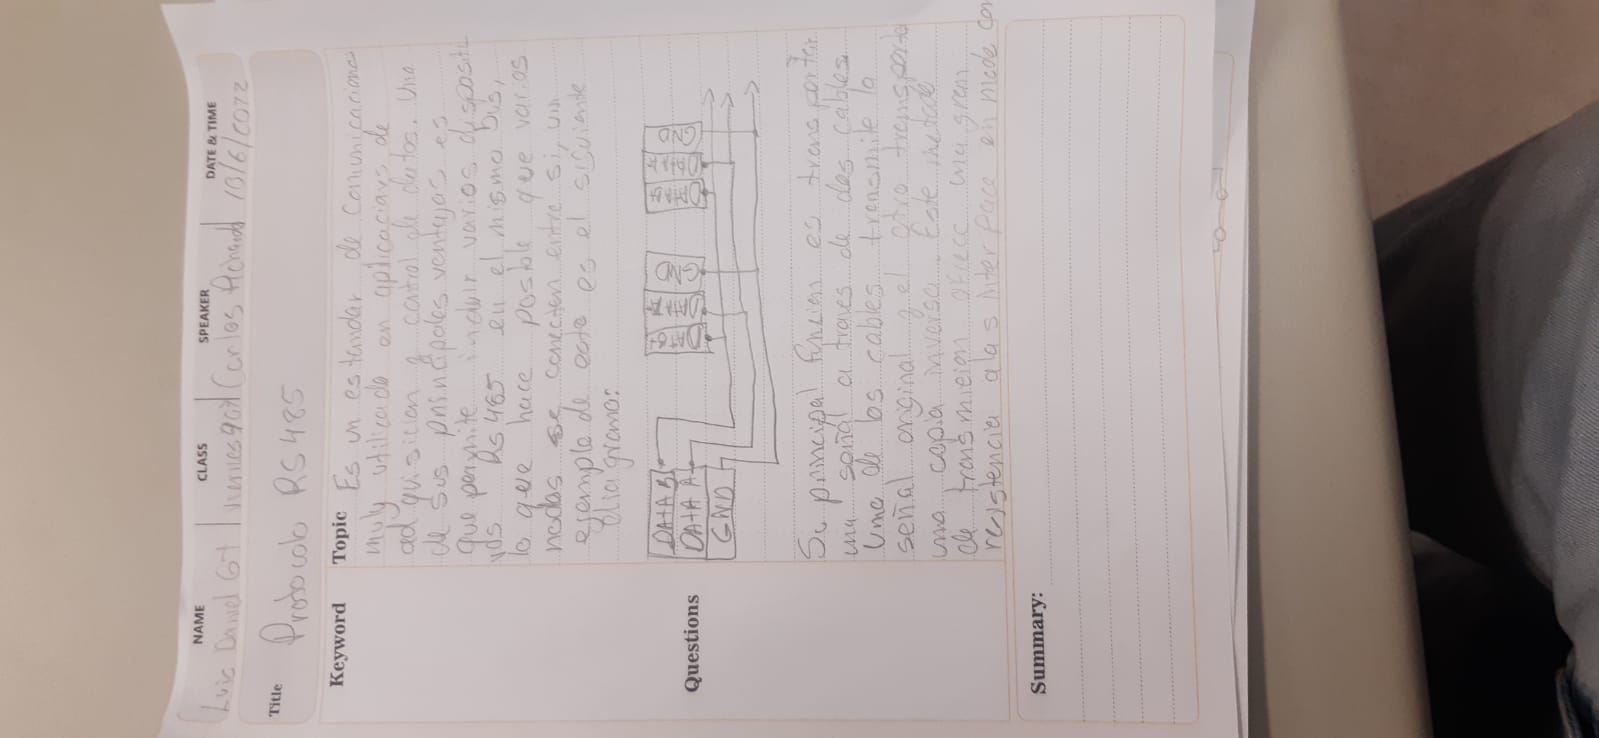 NAME CLASS SPEAKER DATE & TIME
Luis Daniel Gt Carlos Pichardo 10/6/2022
Title Protocolo RS485
Keyword Topic
Es un estandar de comunicaciones
muy utilizado en aplicaciones de
adquisicion y control de datos. Una
de sus principales ventajas es
que permite incluir varios dispositi
vos RS485 en el mismo bus,
lo que hace posible que varios
nodos se conecten entre si, un
ejemplo de esto es el siguiente
diagrama:
DATA B
DATA A
GND
Questions
Su principal funcion es transportar
una señal a traves de dos cables.
Uno de los cables transmite la
señal original y el otro transporta
una copia inversa. Este metodo
de transmicion ofrece una gran
resistencia a las interface en modo com
Summary: